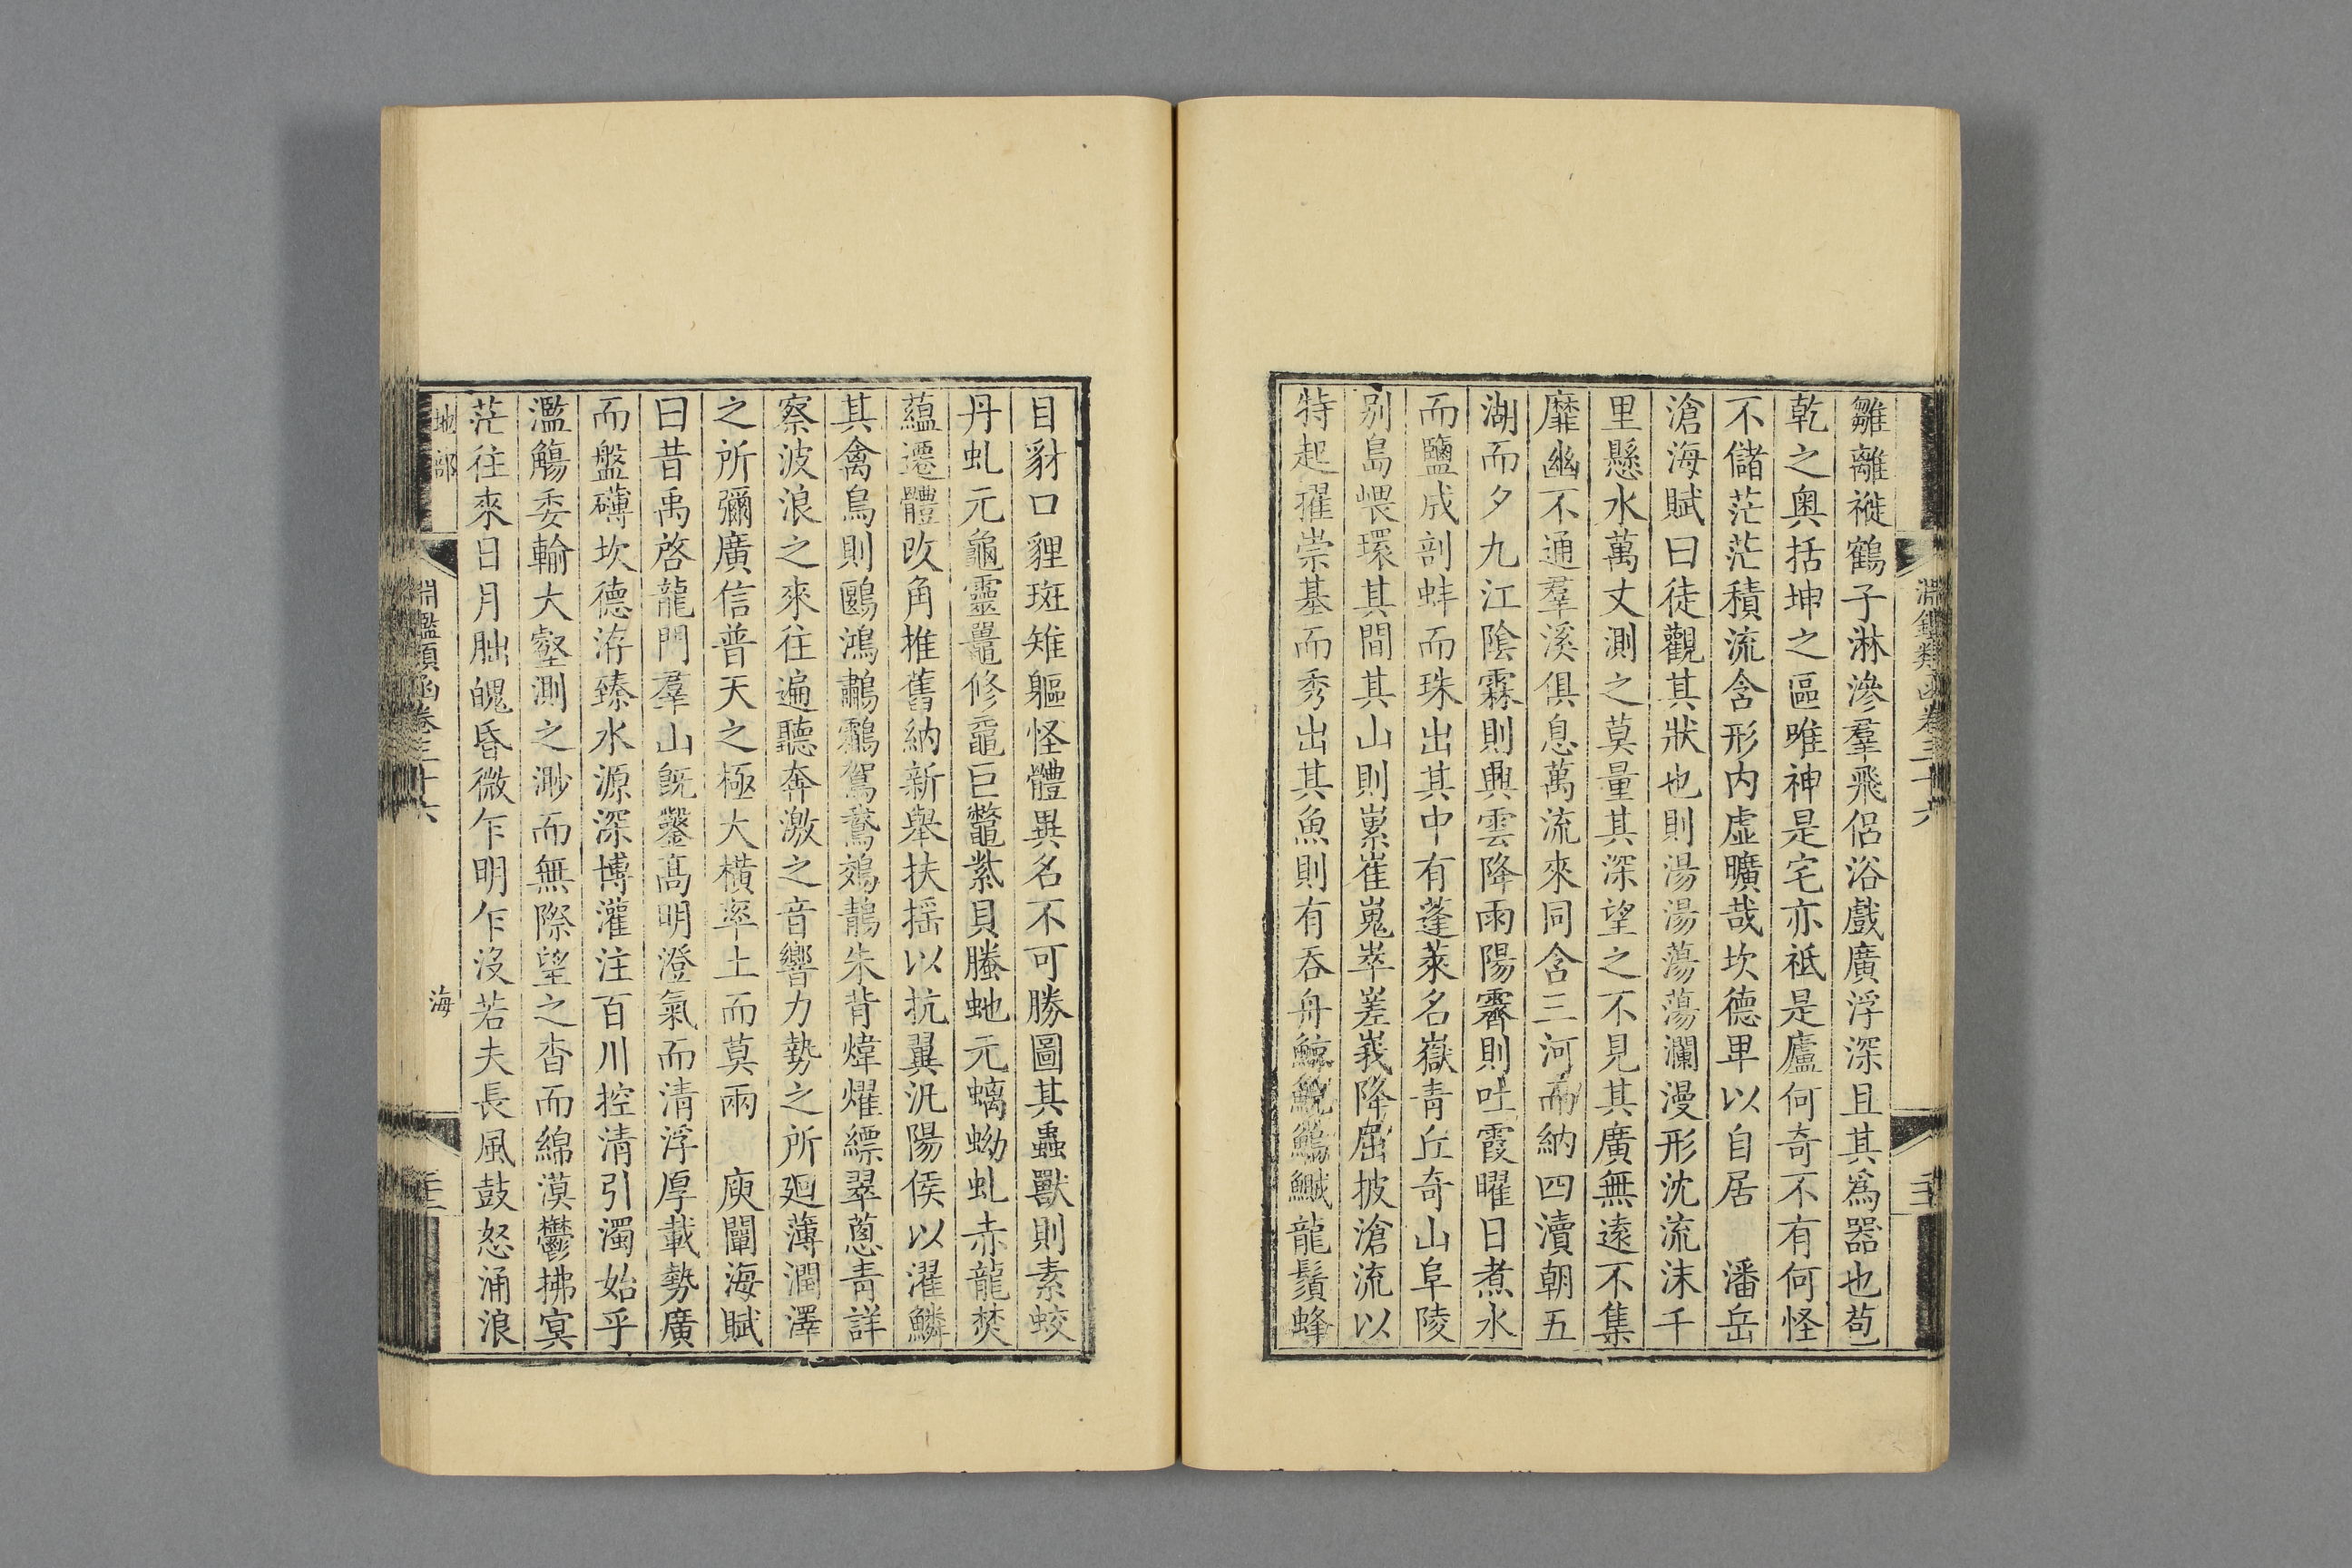 淵鑑類函卷三十六
雛離褷鶴子淋滲羣飛侶浴戲廣浮深且其爲器也苞
乾之奧括坤之區唯神是宅亦祗是廬何奇不有何怪
不儲茫茫積流含形内虛曠哉坎德卑以自居　潘岳
滄海賦曰徒觀其狀也則湯湯蕩蕩瀾漫形沈流沫千
里懸水萬丈測之莫量其深望之不見其廣無遠不集
靡幽不通羣溪俱息萬流來同含三河而納四瀆朝五
湖而夕九江陰霖則興雲降雨陽霽則吐霞曜日煮水
而鹽成剖蚌而珠出其中有蓬萊名嶽青丘奇山阜陵
别島崐環其間其山則崣崔嵬崒嵳峩降屈披滄流以
特起擢崇基而秀出其魚則有吞舟鯨鯢鰞鰄龍鬚蜂
目豺口貍斑雉軀怪體異名不可勝圖其蟲獸則素蛟
丹虬元龜靈鼉修黿巨鼈紫貝螣虵元螭蚴虬赤龍焚
蘊遷體改角推舊納新舉扶摇以抗翼汎陽侯以濯鱗
其禽鳥則鷗鴻鷫鷞鴐鵞鵁鶄朱背煒燿縹翠蔥青詳
察波浪之來往遍聽奔激之音響力勢之所廻薄潤澤
之所彌廣信普天之極大橫率土而莫兩　庾闡海賦
曰昔禹啓龍門羣山旣鑿髙明澄氣而清浮厚載勢廣
而盤礴坎德洊臻水源深博灌注百川控清引濁始乎
濫觴委輸大壑測之渺而無際望之杳而綿漠鬱拂冥
茫往來日月朏魄昏微乍明乍沒若夫長風鼓怒涌浪
地部
淵鑑類函卷三十六
海